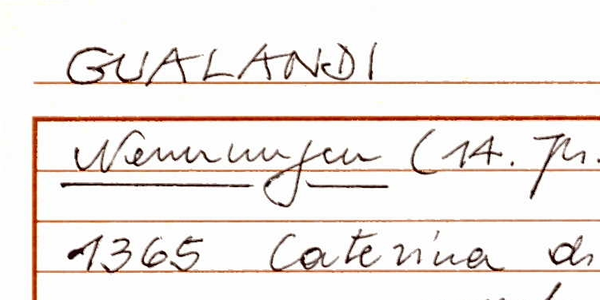 GUALANDI
Nennungen (14. Jh.
1365 Caterina di